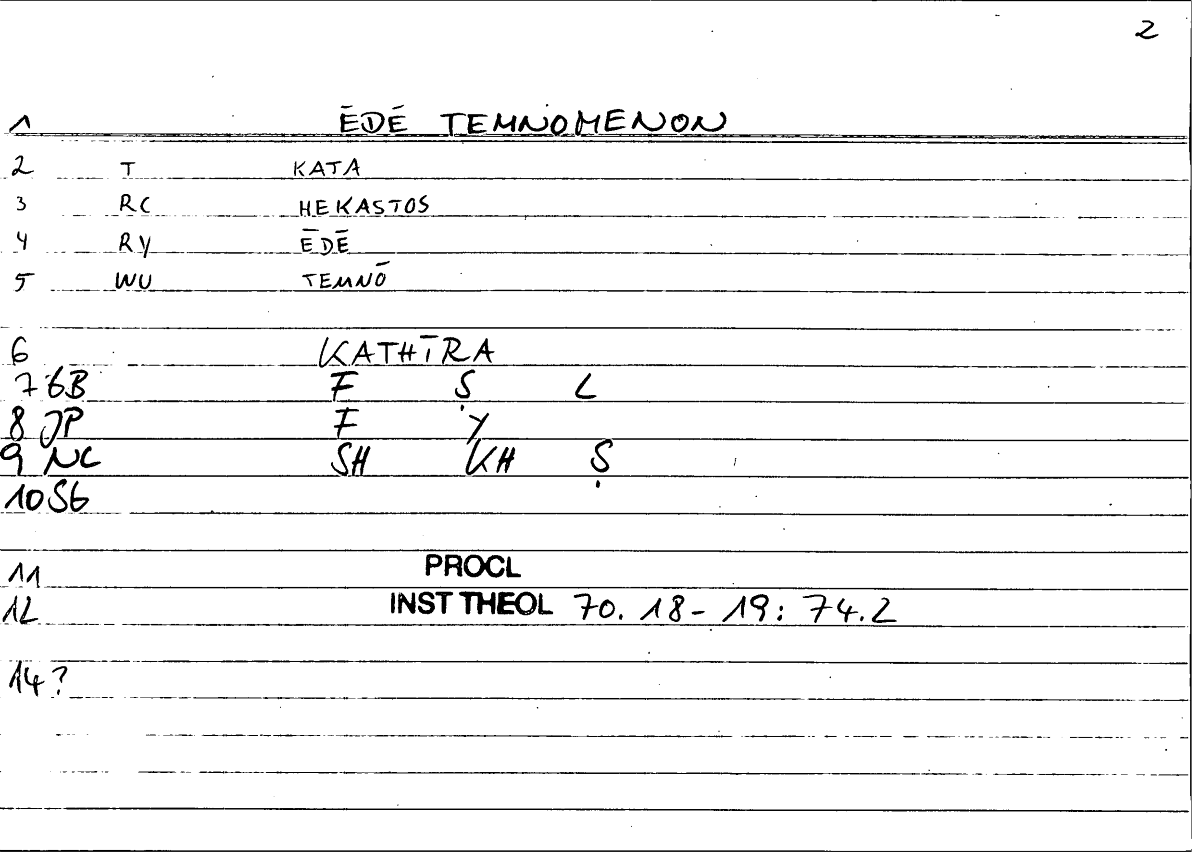 2
1 ĒDĒ TEMNOMENON
2 T KATA
3 RC HEKASTOS
4 RY ĒDĒ
5 WU TEMNŌ
6 KATHĪRA
7 6B F Ṣ L
8 JP F Y
9 NC SH KH Ṣ
10 S6
11 PROCL
12 INST THEOL 70. 18-19: 74.2
14?